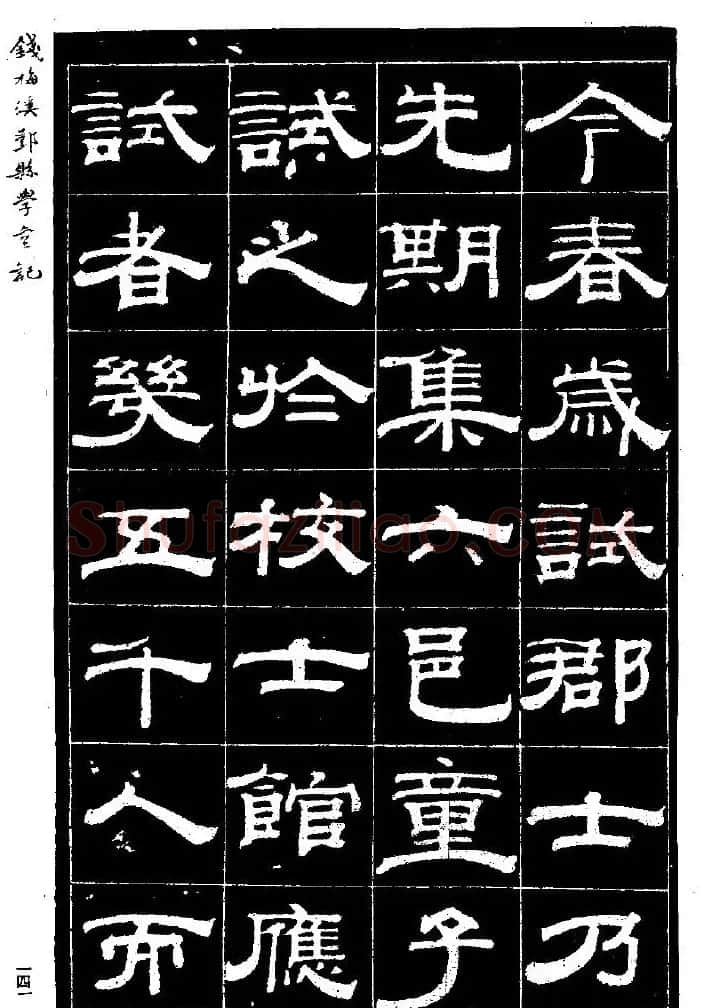 今春歲試郡士乃
先期集六邑童子
試之於校士館應
試者幾五千人而
錢梅溪鄞縣學重記
一四一
Shufaziliao.COM